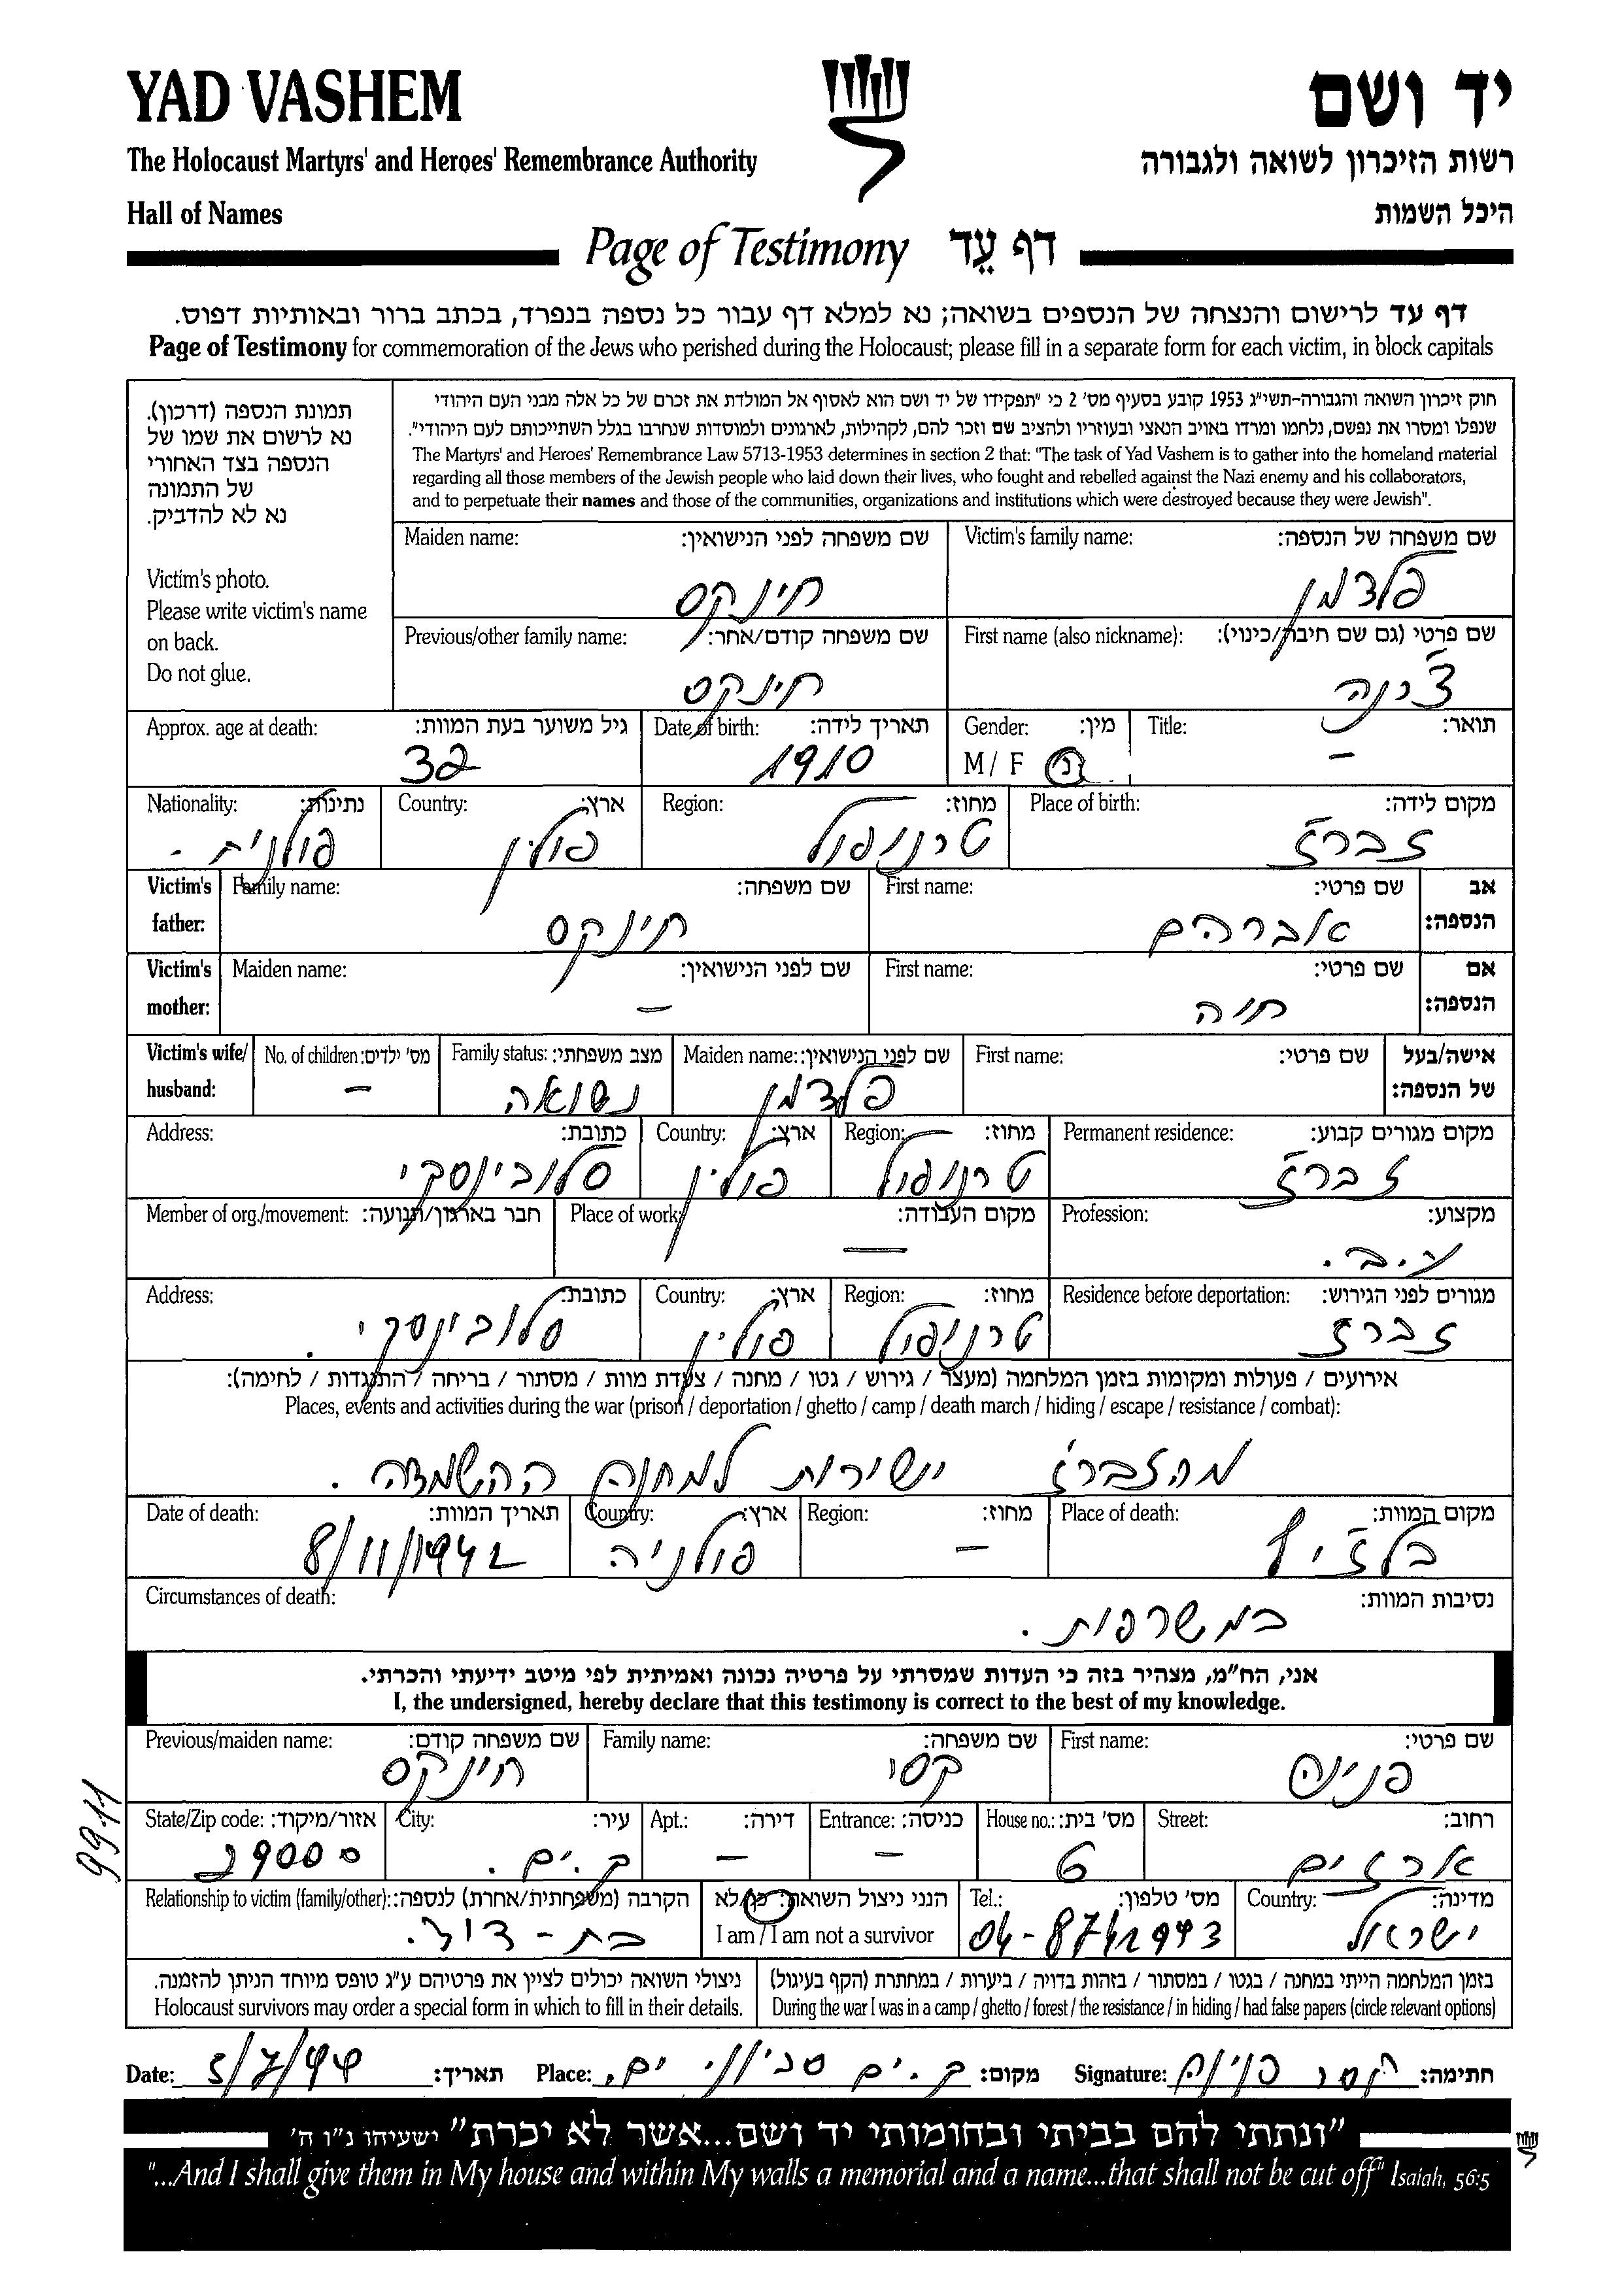 YAD VASHEM
יד ושם
The Holocaust Martyrs' and Heroes' Remembrance Authority
רשות הזיכרון לשואה ולגבורה
Hall of Names
היכל השמות
Page of Testimony דף עֵד
דף עד לרישום והנצחה של הנספים בשואה; נא למלא דף עבור כל נספה בנפרד, בכתב ברור ובאותיות דפוס.
Page of Testimony for commemoration of the Jews who perished during the Holocaust; please fill in a separate form for each victim, in block capitals
תמונת הנספה (דרכון).
נא לרשום את שמו של
הנספה בצד האחורי
של התמונה
נא לא להדביק.
Victim's photo.
Please write victim's name
on back.
Do not glue.
חוק זיכרון השואה והגבורה-תשי"ג 1953 קובע בסעיף מס' 2 כי "תפקידו של יד ושם הוא לאסוף אל המולדת את זכרם של כל אלה מבני העם היהודי
שנפלו ומסרו את נפשם, נלחמו ומרדו באויב הנאצי ובעוזריו ולהציב שם וזכר להם, לקהילות, לארגונים ולמוסדות שנחרבו בגלל השתייכותם לעם היהודי".
The Martyrs' and Heroes' Remembrance Law 5713-1953 determines in section 2 that: "The task of Yad Vashem is to gather into the homeland material
regarding all those members of the Jewish people who laid down their lives, who fought and rebelled against the Nazi enemy and his collaborators,
and to perpetuate their names and those of the communities, organizations and institutions which were destroyed because they were Jewish".
Maiden name: שם משפחה לפני הנישואין: Victim's family name: שם משפחה של הנספה:
חינקס פלדמן
Previous/other family name: שם משפחה קודם/אחר: First name (also nickname): שם פרטי (גם שם חיבה/כינוי):
חינקס צ'רנה
Approx. age at death: גיל משוער בעת המוות: Date of birth: תאריך לידה: Gender: מין: Title: תואר:
32 1910 M / F נ –
Nationality: נתינות: Country: ארץ: Region: מחוז: Place of birth: מקום לידה:
פולנית - פולין טרנופול זברז'
Victim's father: Family name: שם משפחה: First name: שם פרטי: אב הנספה:
חינקס אברהם
Victim's mother: Maiden name: שם לפני הנישואין: First name: שם פרטי: אם הנספה:
– חוה
Victim's wife/ husband: No. of children: מס' ילדים: Family status: מצב משפחתי: Maiden name: שם לפני הנישואין: First name: שם פרטי: אישה/בעל של הנספה:
– נשואה פלדמן
Address: כתובת: Country: ארץ: Region: מחוז: Permanent residence: מקום מגורים קבוע:
סלובינסקי פולין טרנופול זברז'
Member of org./movement: חבר בארגון/תנועה: Place of work: מקום העבודה: Profession: מקצוע:
– ע.ב.
Address: כתובת: Country: ארץ: Region: מחוז: Residence before deportation: מגורים לפני הגירוש:
סלובינסקי. פולין טרנופול זברז
אירועים / פעולות ומקומות בזמן המלחמה (מעצר / גירוש / גטו / מחנה / צעדת מוות / מסתור / בריחה / התנגדות / לחימה):
Places, events and activities during the war (prison / deportation / ghetto / camp / death march / hiding / escape / resistance / combat):
מהזברז' ישירות למחנה ההשמדה.
Date of death: תאריך המוות: Country: ארץ: Region: מחוז: Place of death: מקום המוות:
8/11/1942 פולניה – בלז'ץ
Circumstances of death: נסיבות המוות:
במשרפות.
אני, הח"מ, מצהיר בזה כי העדות שמסרתי על פרטיה נכונה ואמיתית לפי מיטב ידיעתי והכרתי.
I, the undersigned, hereby declare that this testimony is correct to the best of my knowledge.
Previous/maiden name: שם משפחה קודם: Family name: שם משפחה: First name: שם פרטי:
חינקס קסו פנינה
9911
State/Zip code: אזור/מיקוד: City: עיר: Apt.: דירה: Entrance: כניסה: House no.: מס' בית: Street: רחוב:
29000 ק.ים. – – 6 ארזים
Relationship to victim (family/other): הקרבה (משפחתית/אחרת) לנספה: הנני ניצול השואה: כן/לא Tel.: מס' טלפון: Country: מדינה:
בת-דוד. I am / I am not a survivor 04-8741943 ישראל
ניצולי השואה יכולים לציין את פרטיהם ע"ג טופס מיוחד הניתן להזמנה. בזמן המלחמה הייתי במחנה / בגטו / במסתור / בזהות בדויה / ביערות / במחתרת (הקף בעיגול)
Holocaust survivors may order a special form in which to fill in their details. During the war I was in a camp / ghetto / forest / the resistance / in hiding / had false papers (circle relevant options)
Date: 5/7/99 תאריך: Place: ק.ים סביוני ים. מקום: Signature: קסו פנינה חתימה:
"ונתתי להם בביתי ובחומותי יד ושם...אשר לא יכרת" ישעיהו נ"ו ה'
"...And I shall give them in My house and within My walls a memorial and a name...that shall not be cut off" Isaiah, 56:5